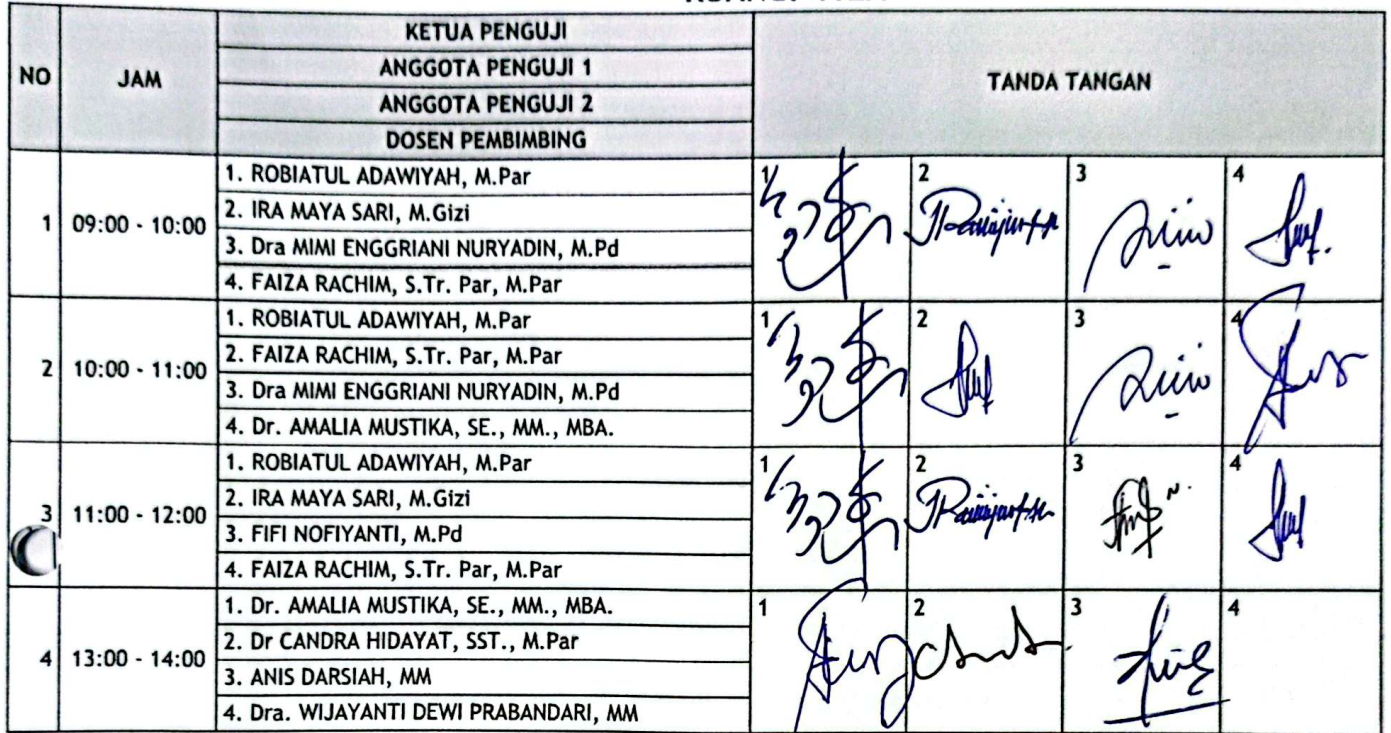 NO JAM KETUA PENGUJI TANDA TANGAN
ANGGOTA PENGUJI 1
ANGGOTA PENGUJI 2
DOSEN PEMBIMBING
1 09:00 - 10:00
1. ROBIATUL ADAWIYAH, M.Par
2. IRA MAYA SARI, M.Gizi
3. Dra MIMI ENGGRIANI NURYADIN, M.Pd
4. FAIZA RACHIM, S.Tr. Par, M.Par
1 2 3 4
2 10:00 - 11:00
1. ROBIATUL ADAWIYAH, M.Par
2. FAIZA RACHIM, S.Tr. Par, M.Par
3. Dra MIMI ENGGRIANI NURYADIN, M.Pd
4. Dr. AMALIA MUSTIKA, SE., MM., MBA.
1 2 3 4
3 11:00 - 12:00
1. ROBIATUL ADAWIYAH, M.Par
2. IRA MAYA SARI, M.Gizi
3. FIFI NOFIYANTI, M.Pd
4. FAIZA RACHIM, S.Tr. Par, M.Par
1 2 3 4
4 13:00 - 14:00
1. Dr. AMALIA MUSTIKA, SE., MM., MBA.
2. Dr CANDRA HIDAYAT, SST., M.Par
3. ANIS DARSIAH, MM
4. Dra. WIJAYANTI DEWI PRABANDARI, MM
1 2 3 4